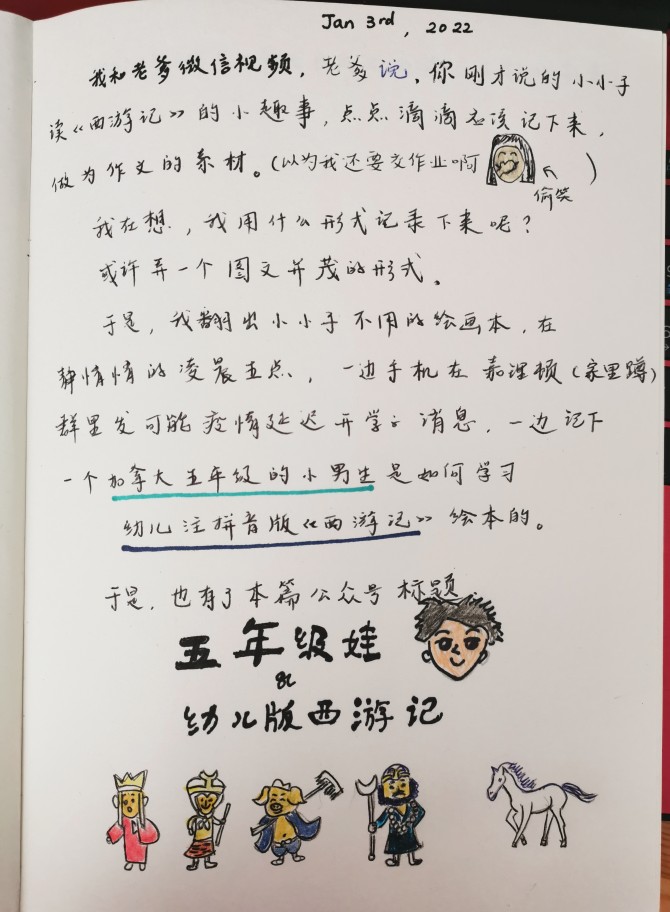 Jan 3rd, 2022
我和老爹微信视频，老爹说，你刚才说的小小子
读《西游记》的小趣事，点点滴滴应该记下来，
做为作文的素材。（以为我还要交作业啊 ）
偷笑
我在想，我用什么形式记录下来呢？
或许弄一个图文并茂的形式。
于是，我翻出小小子不用的绘画本，在
静悄悄的凌晨五点，一边手机在嘉理顿（家里蹲）
群里发可能疫情延迟开学的消息，一边记下
一个加拿大五年级的小男生是如何学习
幼儿注拼音版《西游记》绘本的。
于是，也有了本篇公众号标题
五年级娃
&
幼儿版西游记